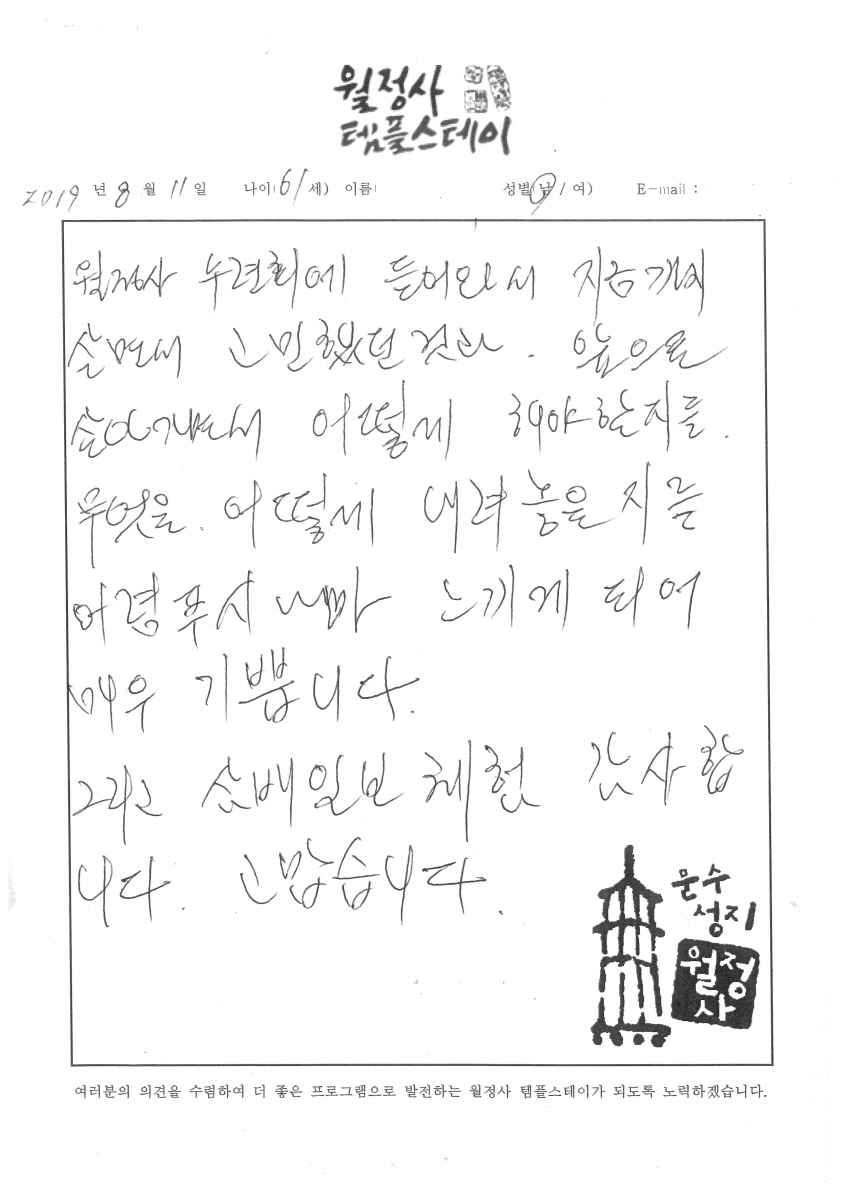 월정사
템플스테이
2019 년 8 월 11 일 나이(61 세) 이름( 성별(남 / 여) E-mail :
월정사 수련회에 들어와서 지금까지
살면서 고민했던 것과. 앞으로
살아가면서 어떻게 해야 할지를.
무엇을. 어떻게 내려 놓을지를
어렴푸시 나마 느끼게 되어
매우 기쁩니다.
그리고 삼배일보 체험 감사합
니다. 고맙습니다.
문수
성지
월정
사
여러분의 의견을 수렴하여 더 좋은 프로그램으로 발전하는 월정사 템플스테이가 되도록 노력하겠습니다.